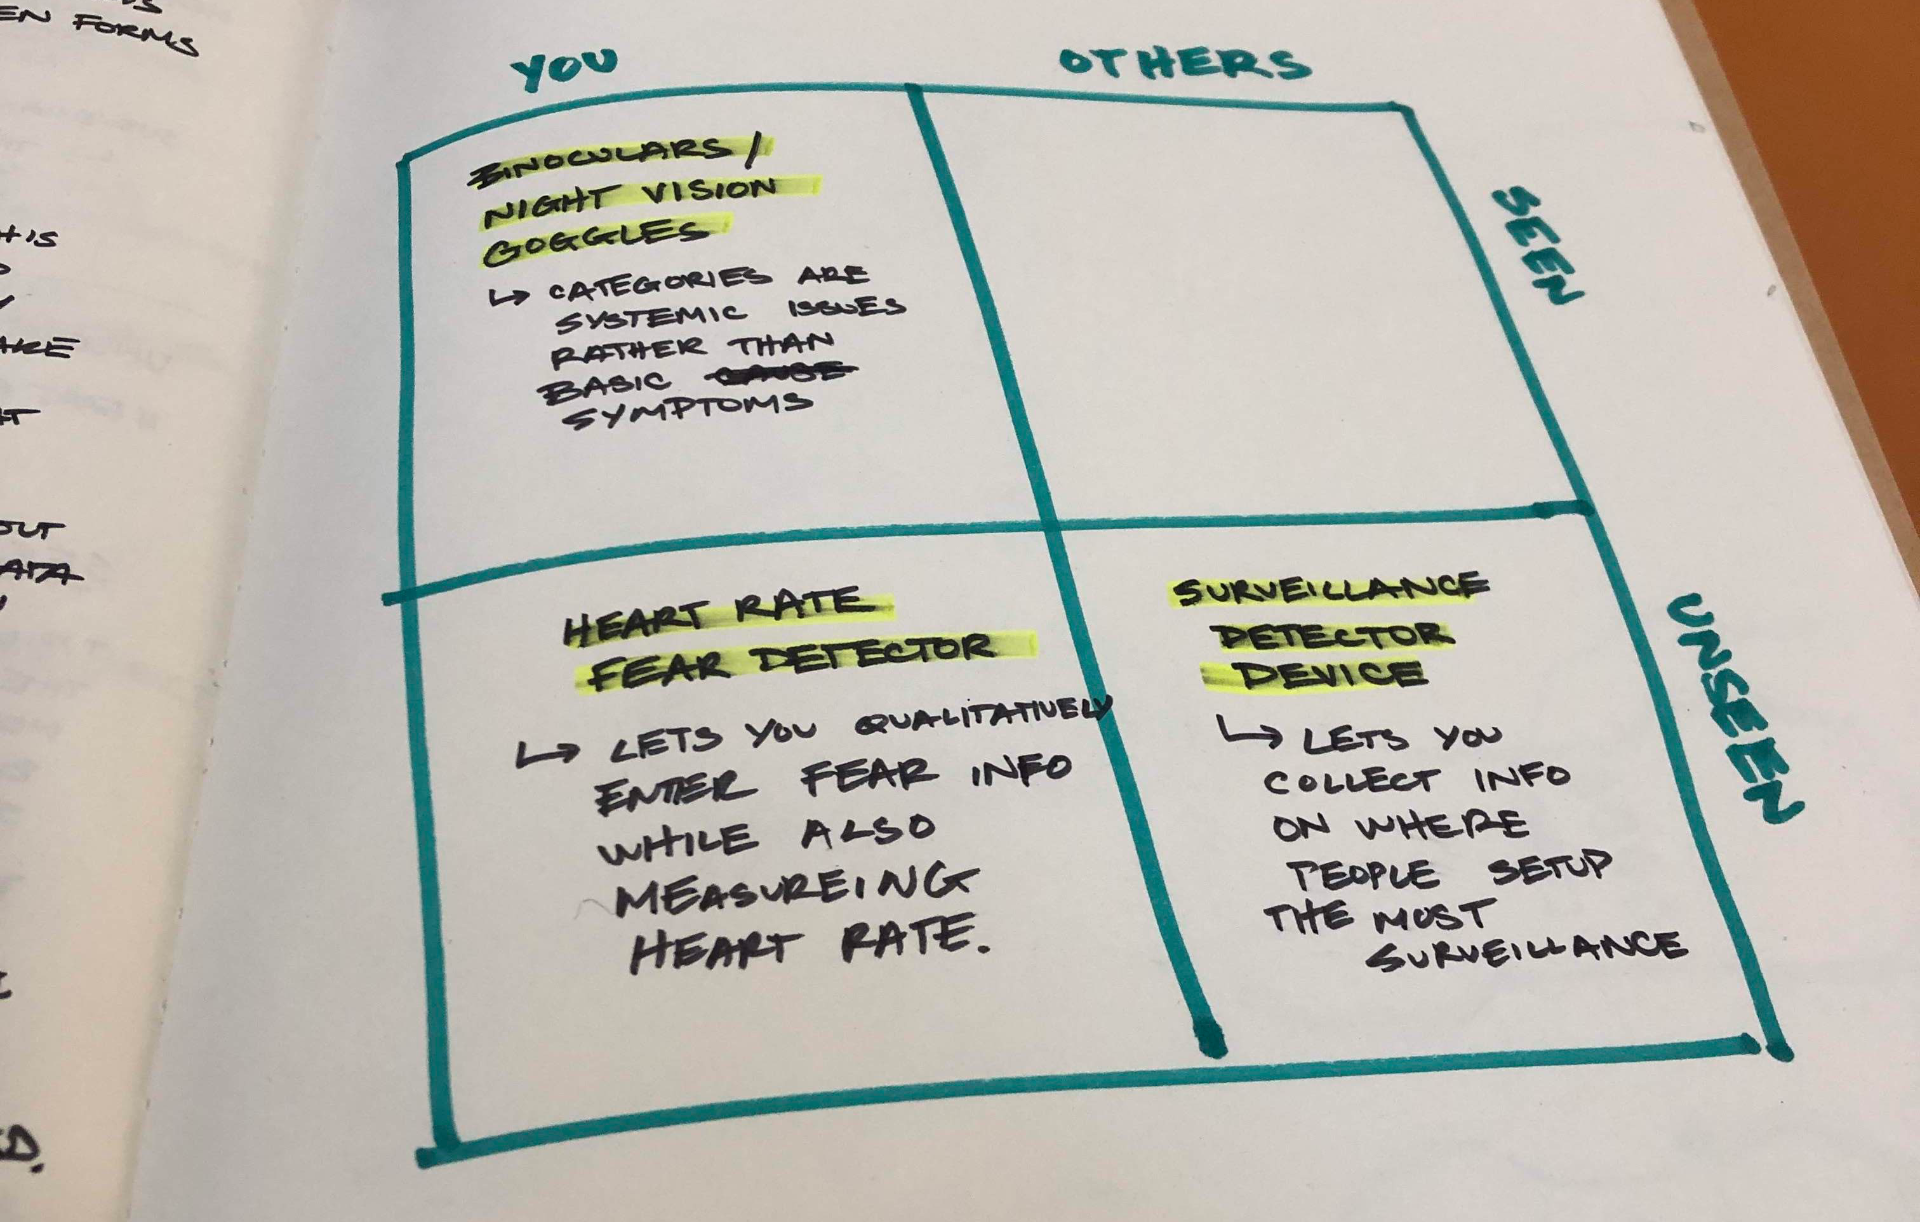 EN FORMS
HIS
ARE
OUT
DATA
D.
YOU
OTHERS
SEEN
UNSEEN
BINOCULARS/
NIGHT VISION
GOGGLES
↳ CATEGORIES ARE
SYSTEMIC ISSUES
RATHER THAN
BASIC CAUSE
SYMPTOMS
HEART RATE
FEAR DETECTOR
↳ LETS YOU QUALITATIVELY
ENTER FEAR INFO
WHILE ALSO
MEASUREING
HEART RATE.
SURVEILLANCE
DETECTOR
DEVICE
↳ LETS YOU
COLLECT INFO
ON WHERE
PEOPLE SETUP
THE MOST
SURVEILLANCE